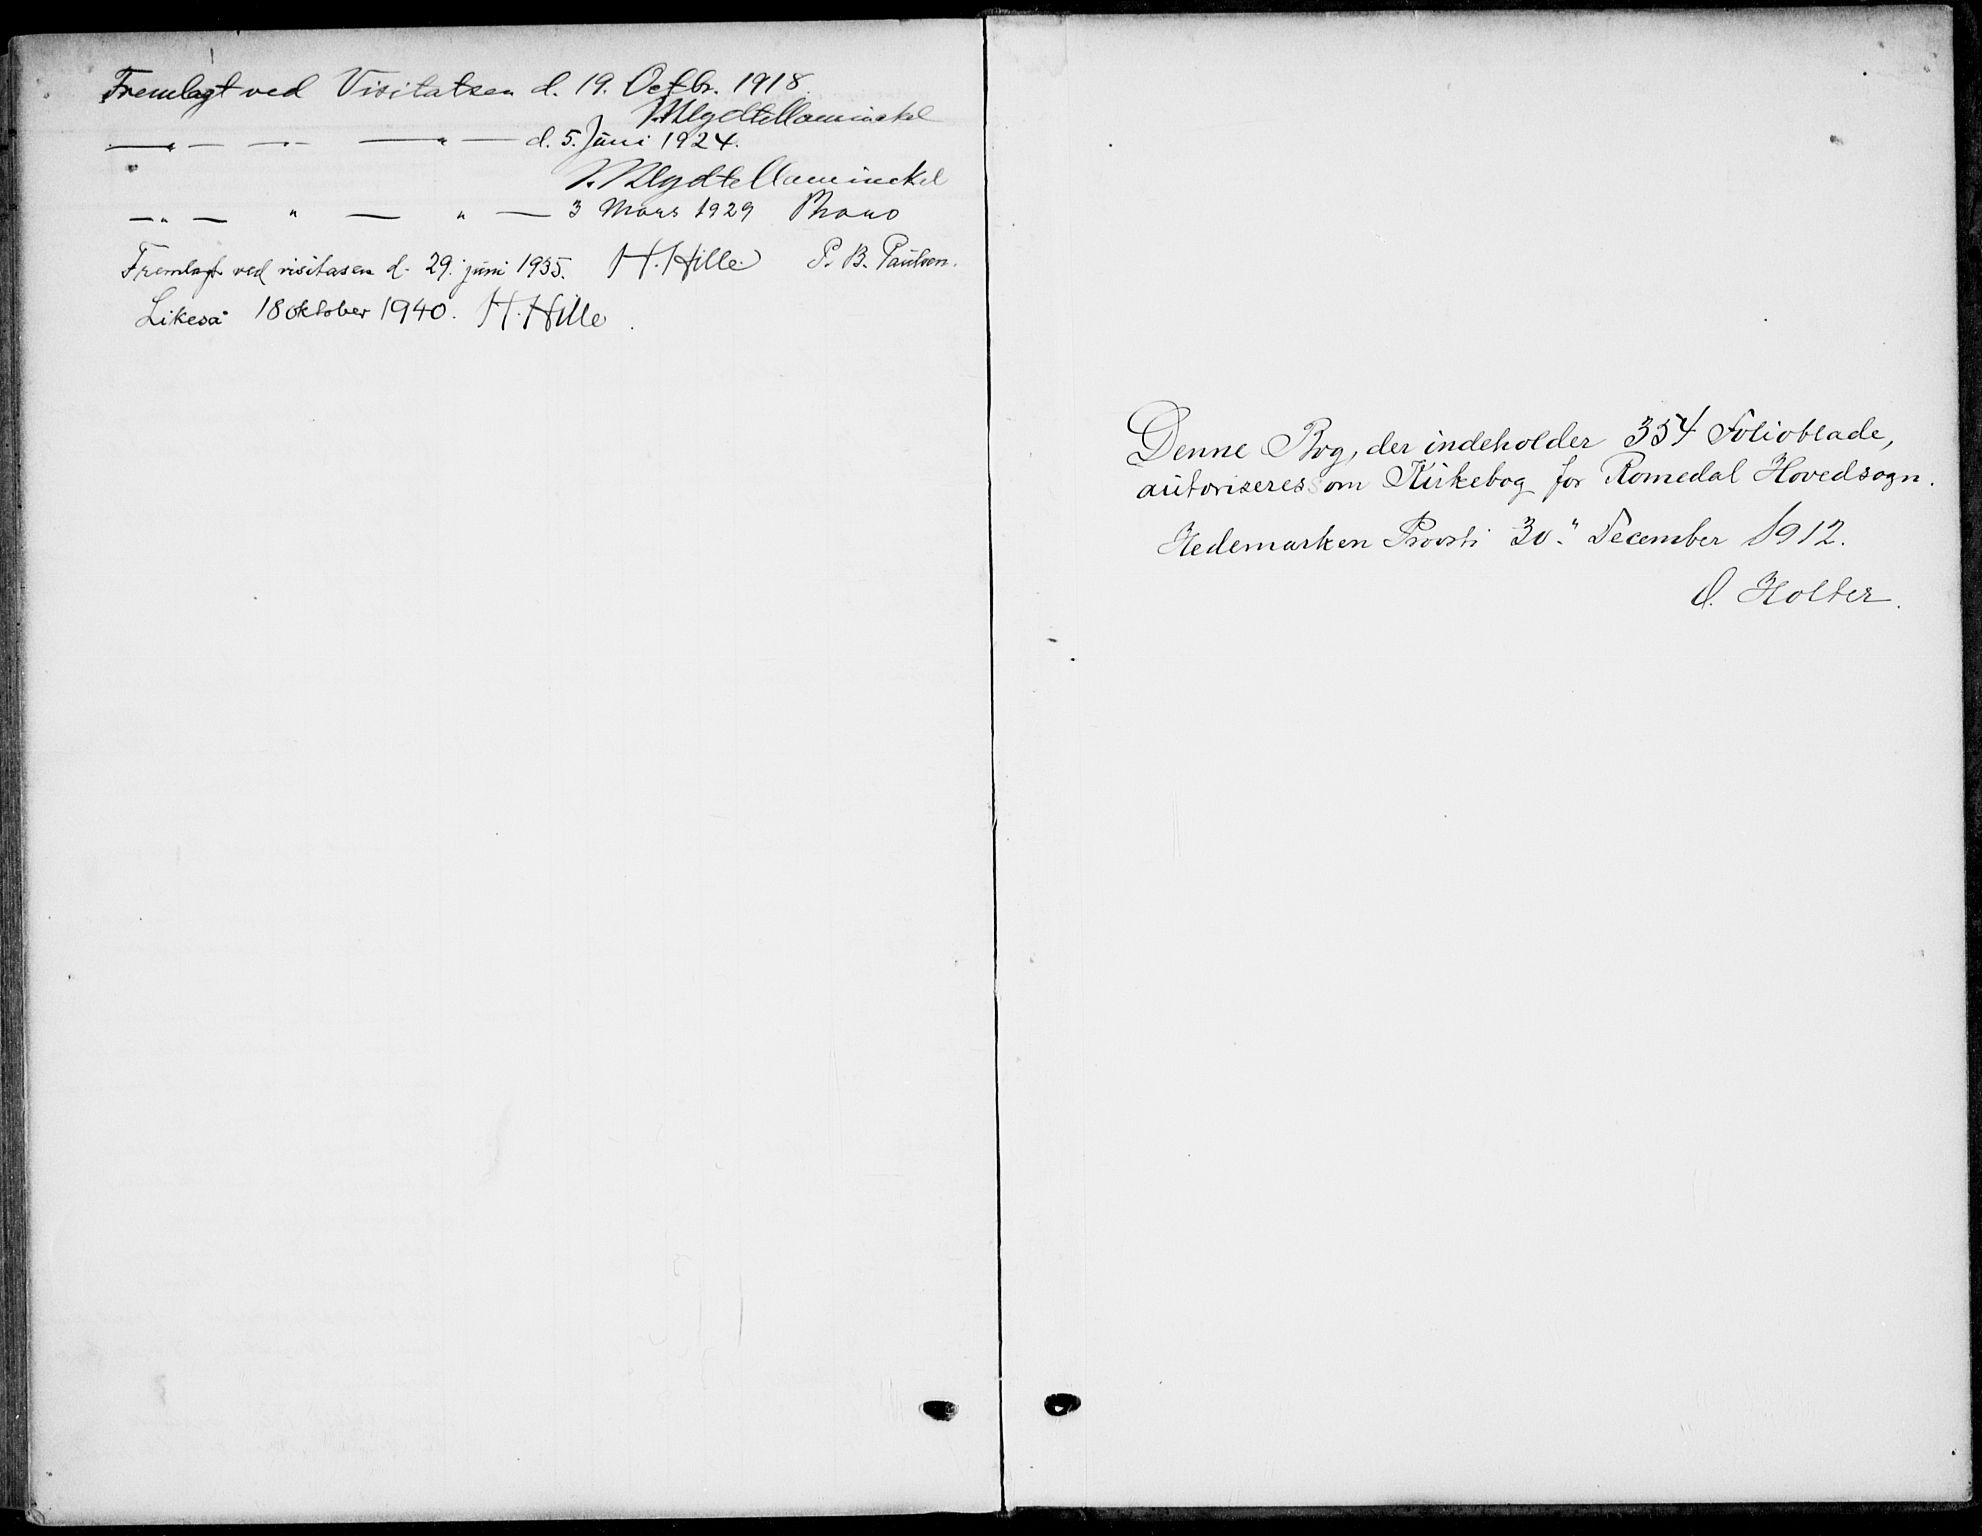 Fremlagt ved Visitatsen d. 19. Octbr. 1918.
— " — — " — — " — d. 5. Juni 1924.
— " — " — " — 3 Mars 1929
Fremlagt ved visitasen d. 29. juni 1935. H. Hille P. B. Paulsen.
Likeså 18 oktober 1940. H. Hille.
Denne Bog, der indeholder 354 Folioblade,
autoriseres som Kirkebog for Romedal Hovedsogn.
Hedemarken Provsti 30." December 1912.
O. Holter.